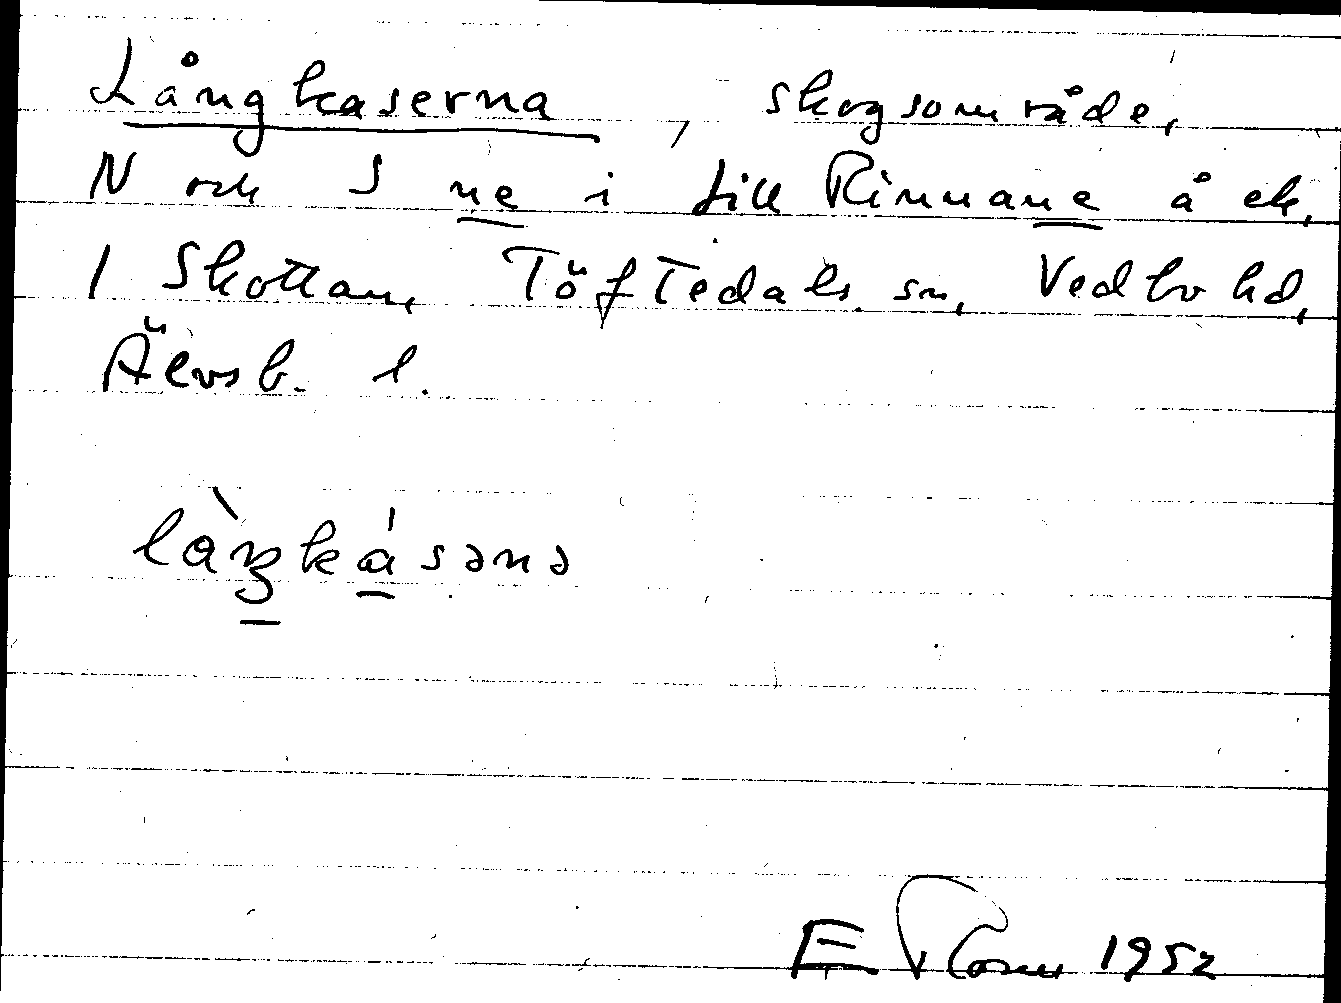 Långkaserna, skogsområde,
N och S ne i till Rinnane å ek.
1 Skottan, Töftedals sn, Vedbo hd,
Älvsb. l.
làŋkásənə
E 1952